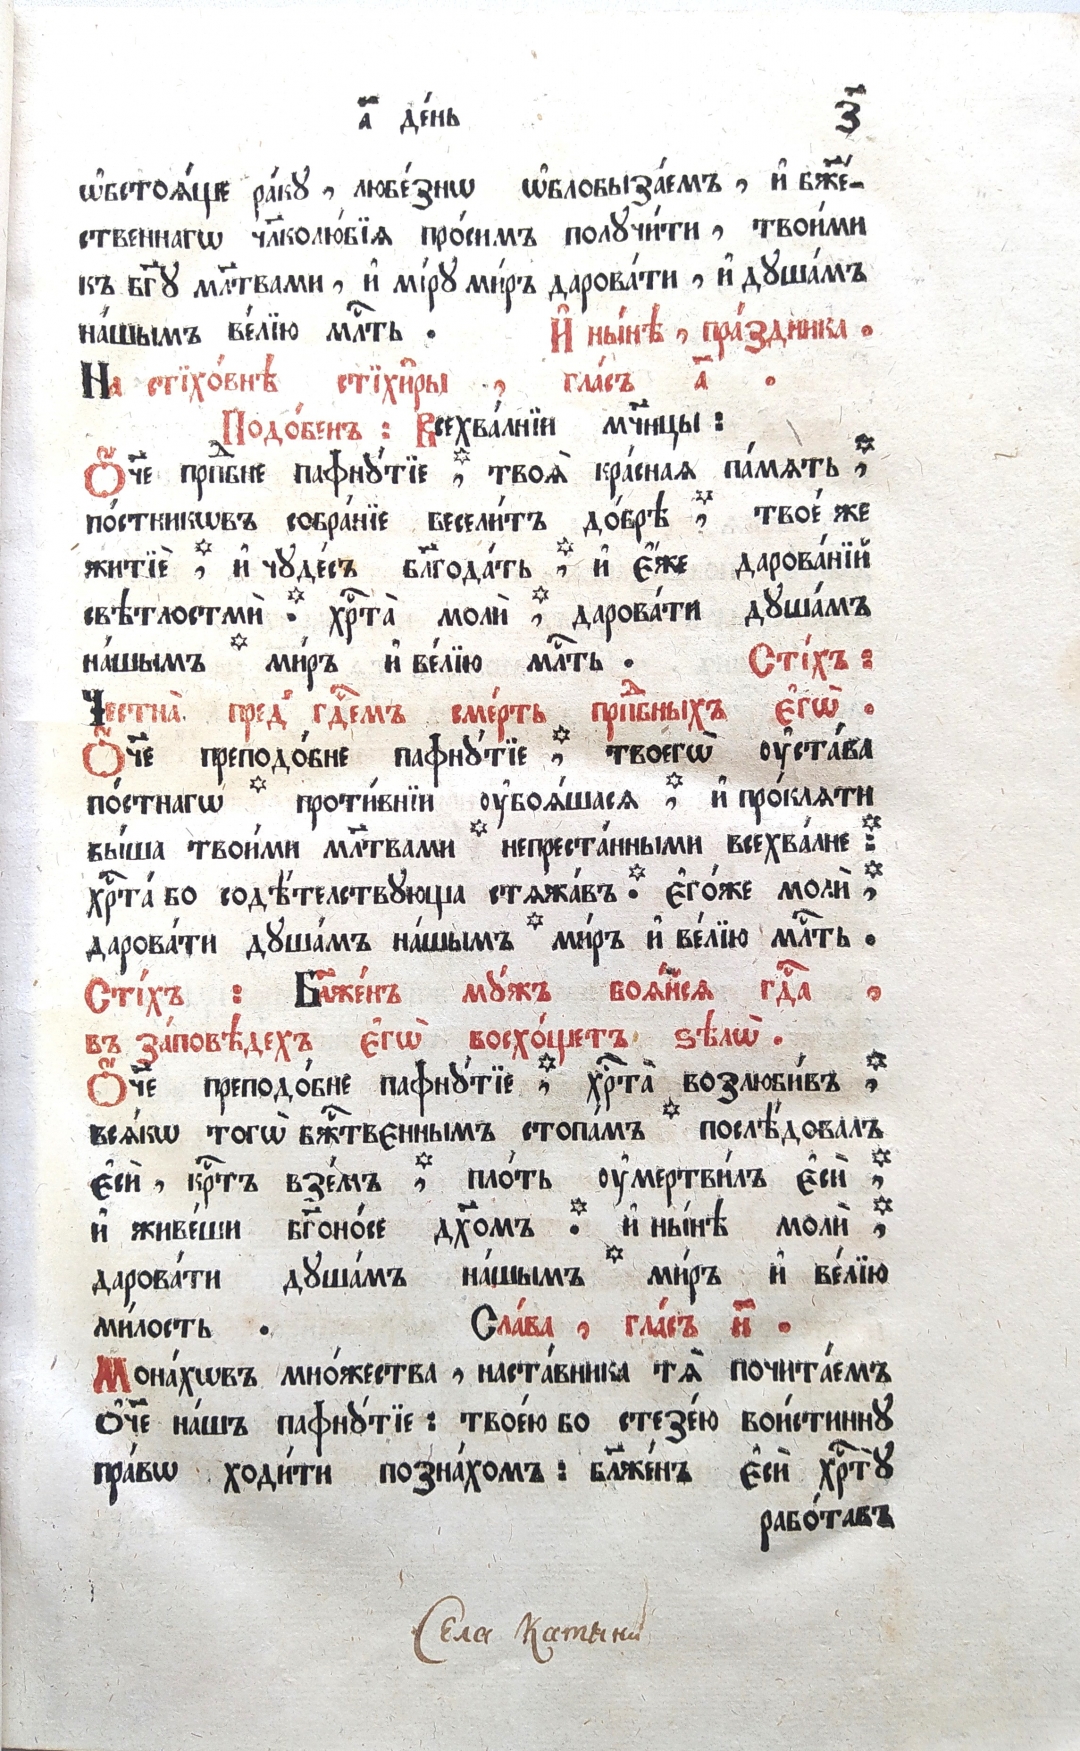 а҃ де́нь з҃
ѡ҆бстоѧ́щїе ра́кꙋ , любе́знѡ ѡ҆блобыза́емъ , и҆ бж҃е́-
ственнагѡ чл҃колю́бїѧ про́симъ полꙋчи́ти , твои́ми
къ бг҃ꙋ мл҃твами , и҆ мі́рꙋ ми́ръ дарова́ти , и҆ дꙋша́мъ
на́шымъ ве́лїю млⷭ҇ть . И҆ ны́нѣ , пра́здника .
На стїхо́внѣ стїхи̑ры , гла́съ а҃ .
Подо́бенъ : Всехва́лнїи мч҃нцы :
Ѻ҆́ч҃е прпⷣбне пафнꙋ́тїе *, твоѧ̀ кра́снаѧ па́мѧть *,
по́стникѡвъ собра́нїе весели́тъ до́брѣ *, твое́ же
житїѐ *, и҆ чꙋде́съ бл҃года́ть *, и҆ є҆́же дарова́нїй
свѣтлостмѝ *. хрⷭ҇та̀ молѝ *, дарова́ти дꙋша́мъ
на́шымъ * ми́ръ и҆ ве́лїю млⷭ҇ть . Сті́хъ :
Честна̀ пред̾ гдⷭ҇емъ сме́рть прпⷣбныхъ є҆гѡ̀ .
Ѻ҆́ч҃е преподо́бне пафнꙋ́тїе *, твоегѡ̀ ᲂу҆ста́ва
по́стнагѡ * проти́внїи ᲂу҆боѧ́шасѧ *, и҆ про́клѧти
бы́ша твои́ми мл҃твами * непреста́нными всехва́лне *:
хрⷭ҇та́ бо содѣ́телствꙋюща стѧжа́въ *. є҆го́же молѝ *,
дарова́ти дꙋша́мъ на́шымъ * ми́ръ и҆ ве́лїю млⷭ҇ть .
Сті́хъ : Бл҃же́нъ мꙋ́жъ боѧ́йсѧ гдⷭ҇а ,
въ за́повѣдехъ є҆гѡ̀ восхо́щетъ ѕѣлѡ̀ .
Ѻ҆́ч҃е преподо́бне пафнꙋ́тїе *, хрⷭ҇та̀ возлюби́въ *,
всѧ́кѡ тогѡ̀ бжⷭ҇твєннымъ стопа́мъ * послѣ́довалъ
є҆сѝ , крⷭ҇тъ взе́мъ *, пло́ть ᲂу҆мертви́лъ є҆сѝ *,
и҆ живе́ши бг҃оно́се дх҃омъ *. и҆ ны́нѣ молѝ *,
дарова́ти дꙋша́мъ на́шымъ * ми́ръ и҆ ве́лїю
ми́лость . Сла́ва , гла́съ и҃ .
Мона́хѡвъ мно́жества , наста́вника тѧ̀ почита́емъ
ѻ҆́ч҃е на́шъ пафнꙋ́тїе : твое́ю бо стезе́ю вои́стиннꙋ
пра́вѡ ходи́ти позна́хомъ : бл҃же́нъ є҆сѝ хрⷭ҇тꙋ̀
рабо́тавъ
Села Катыни